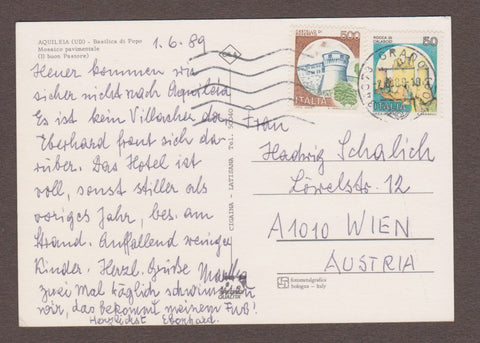 AQUILEIA (UD) - Basilica di Popo
Mosaico pavimentale
(Il buon Pastore)
1.6.89
Heuer kommen wir
sicher nicht nach Aquileia
Es ist kein Villacher da
Eberhard freut sich da-
rüber. Das Hotel ist
voll, sonst stiller als
voriges Jahr, bes. am
Strand. Auffallend weniger
Kinder. Herzl. Grüße
zwei Mal täglich schwimmen
wir, das bekommt meinem Fuß!
Herzlichst Eberhard.
CIGAINA - LATISANA Tel.
500
ITALIA
ROCCA DI
CALASCIO
50
ITALIA
GRADO
Frau
Hedwig Schalich
Löwelstr. 12
A1010 WIEN
AUSTRIA
fotometalgrafica
bologna - italy